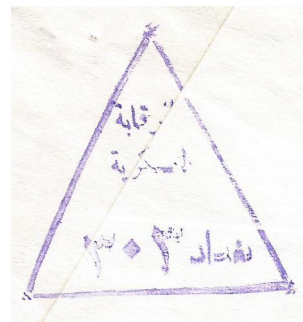 الرقابة
العسكرية
بغداد ٣٠٣